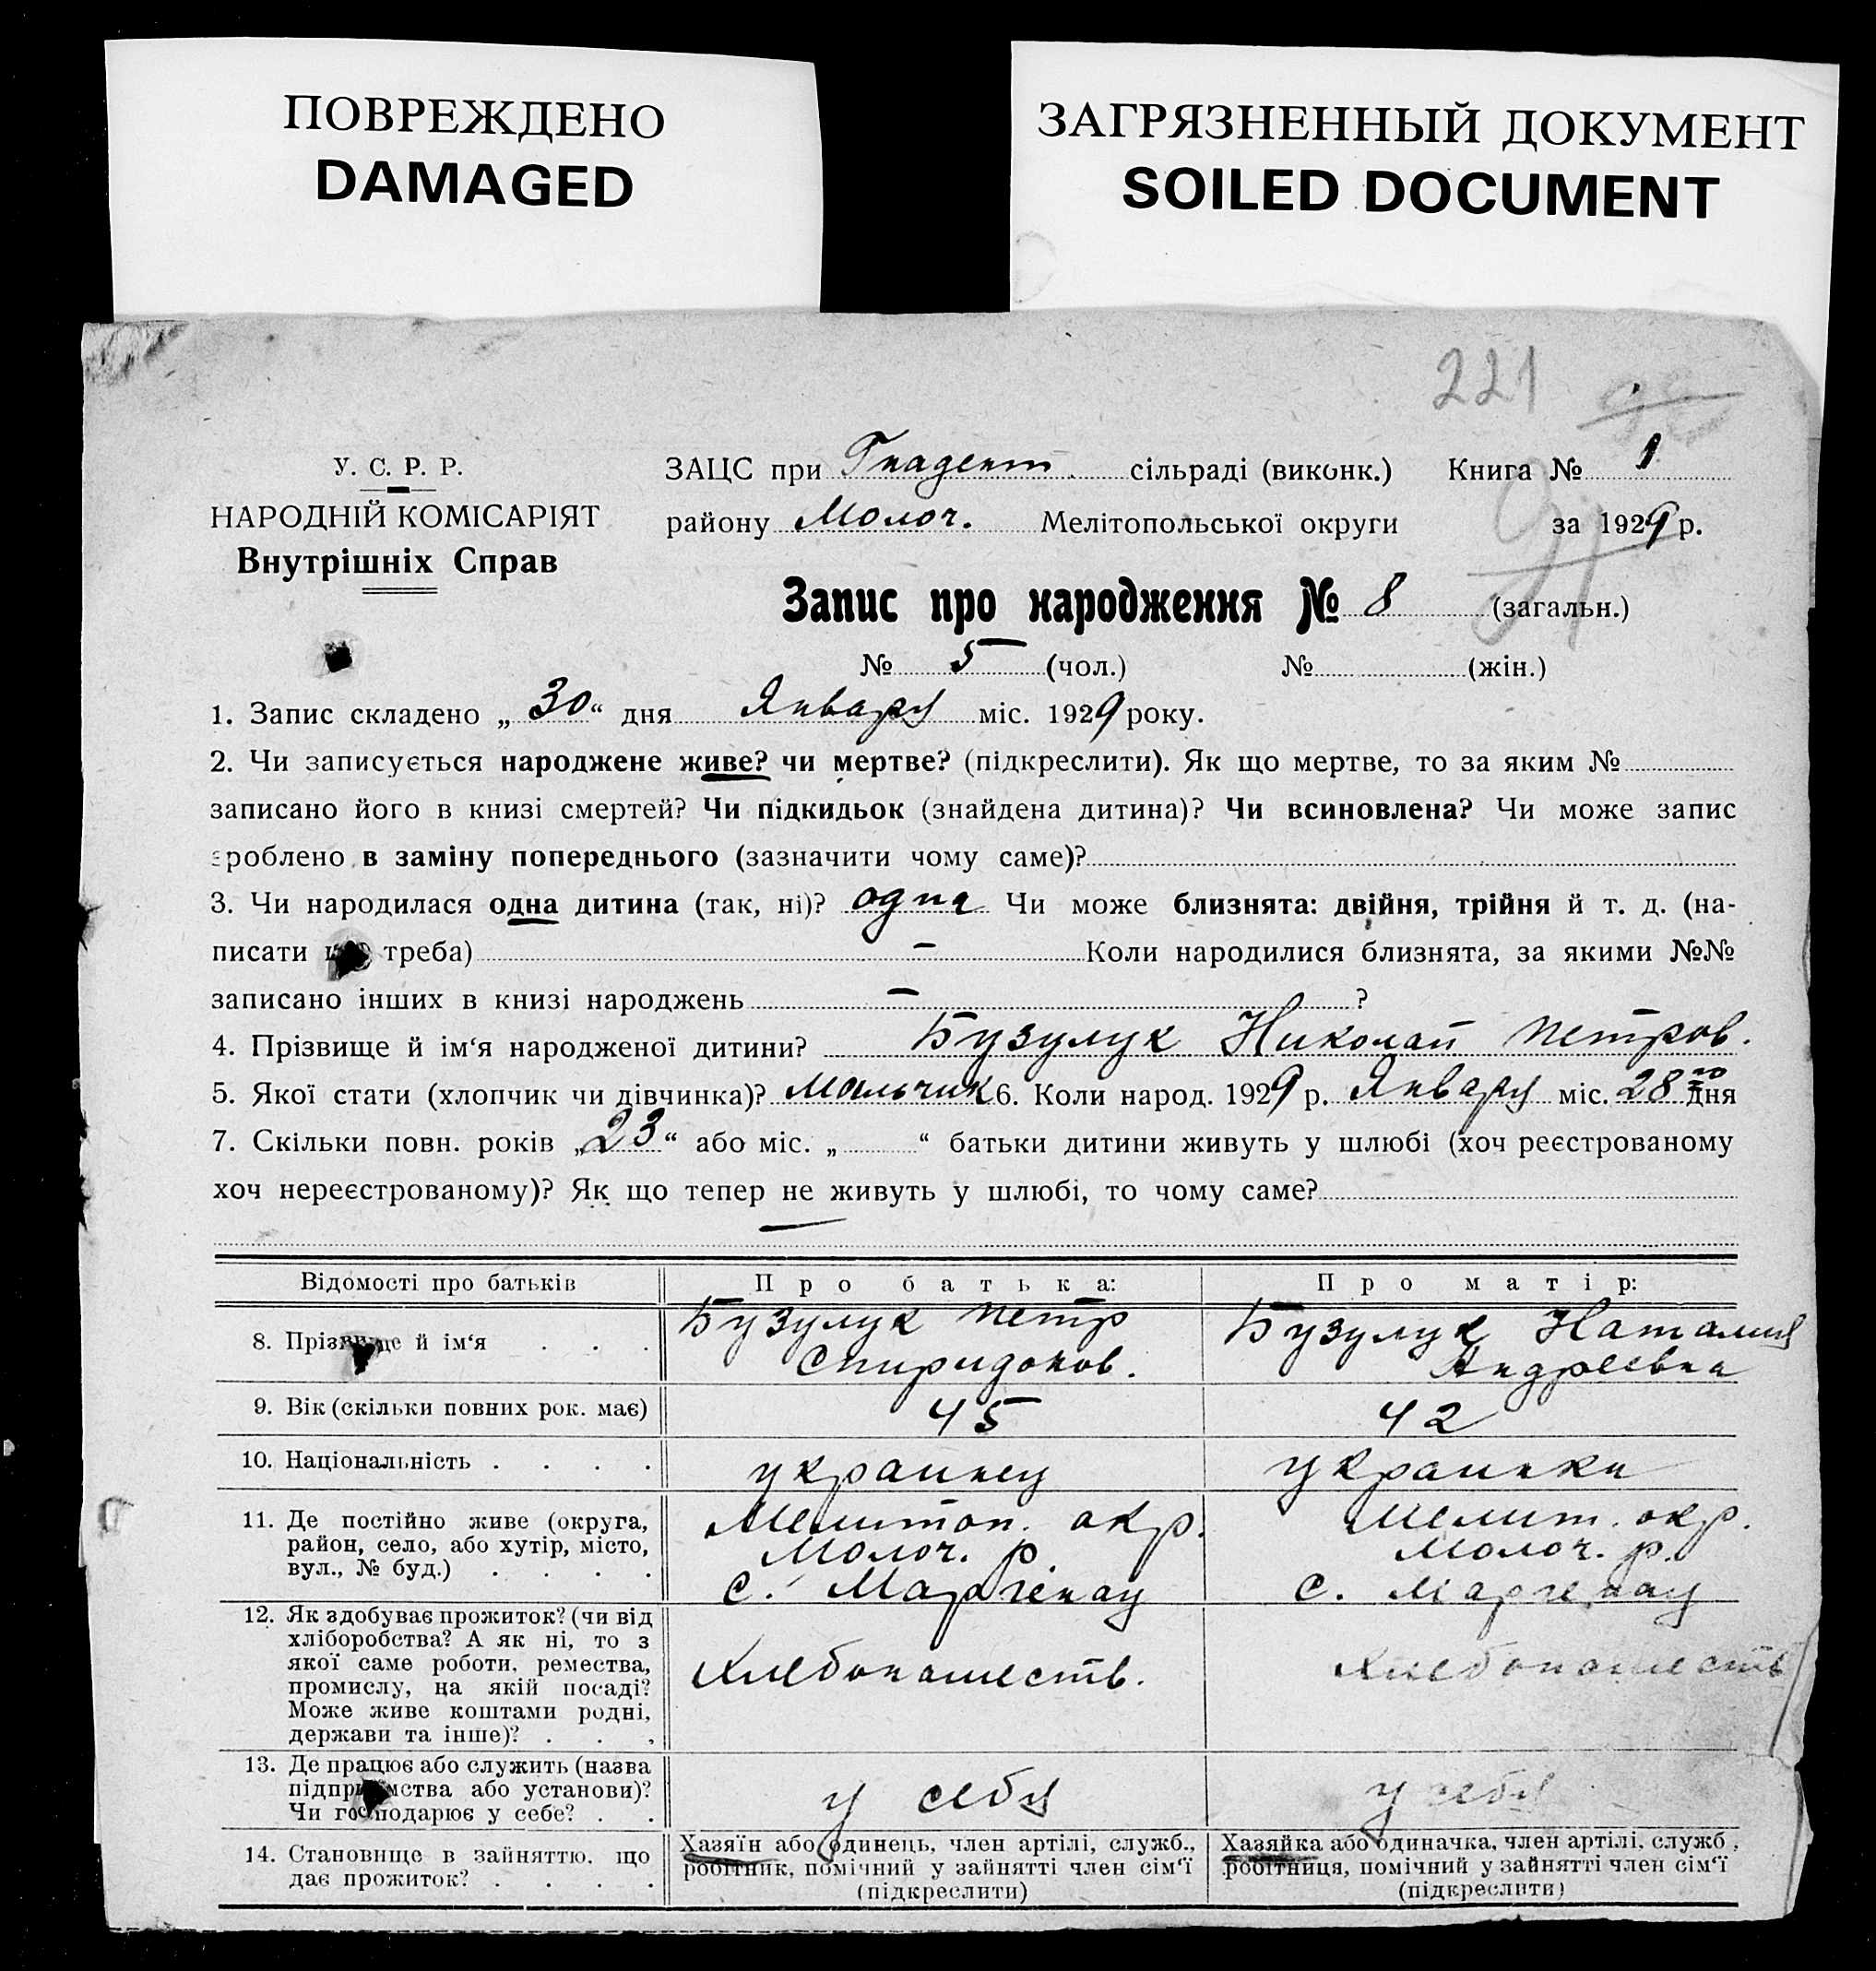 ПОВРЕЖДЕНО
DAMAGED
ЗАГРЯЗНЕННЫЙ ДОКУМЕНТ
SOILED DOCUMENT
221
У. С. Р. Р.
НАРОДНІЙ КОМІСАРІЯТ
Внутрішніх Справ
ЗАЦС при Гнадент. сільраді (виконк.) Книга № 1
району Молоч. Мелітопольської округи за 1929 р.
91
Запис про народження № 8 (загальн.)
№ 5 (чол.) № (жін.)
1. Запис складено „30“ дня Января міс. 1929 року.
2. Чи записується народжене живе? чи мертве? (підкреслити). Як що мертве, то за яким №
записано його в книзі смертей? Чи підкидьок (знайдена дитина)? Чи всиновлена? Чи може запис
зроблено в заміну попереднього (зазначити чому саме)?
3. Чи народилася одна дитина (так, ні)? одна Чи може близнята: двійня, трійня й т. д. (на-
писати що треба) – Коли народилися близнята, за якими №№
записано інших в книзі народжень – ?
4. Прізвище й ім‘я народженої дитини? Бузулук Николай Петров.
5. Якої стати (хлопчик чи дівчинка)? Мальчик 6. Коли народ. 1929 р. Января міс. 28го дня
7. Скільки повн. років „23“ або міс. „ “ батьки дитини живуть у шлюбі (хоч реєстрованому
хоч нереєстрованому)? Як що тепер не живуть у шлюбі, то чому саме?
—
Відомості про батьків Про батька: Про матір:
8. Прізвище й ім‘я . . .
Бузулук Петр
Спиридонов.
Бузулук Наталия
Андреевна
9. Вік (скільки повних рок. має) 45 42
10. Національність . . . . украинец украинки
11. Де постійно живе (округа,
район, село, або хутір, місто,
вул., № буд.) . . . .
Мелитоп. окр.
Молоч. р
с. Маргенау
Мелит. окр.
Молоч. р.
с. Маргенау
12. Як здобуває прожиток? (чи від
хліборобства? А як ні, то з
якої саме роботи, ремества,
промислу, на якій посаді?
Може живе коштами родні,
держави та інше)? . . .
Хлебопашеств.
Хлебопашеств
13. Де працює або служить (назва
підприємства або установи)?
Чи господарює у себе? . .
у себя
у себя
14. Становище в зайняттю, що
дає прожиток? . . . .
Хазяїн або одинець, член артілі, служб.,
робітник, помічний у зайнятті член сім‘ї
(підкреслити)
Хазяйка або одиначка, член артілі, служб.,
робітниця, помічний у зайнятті член сім‘ї
(підкреслити)